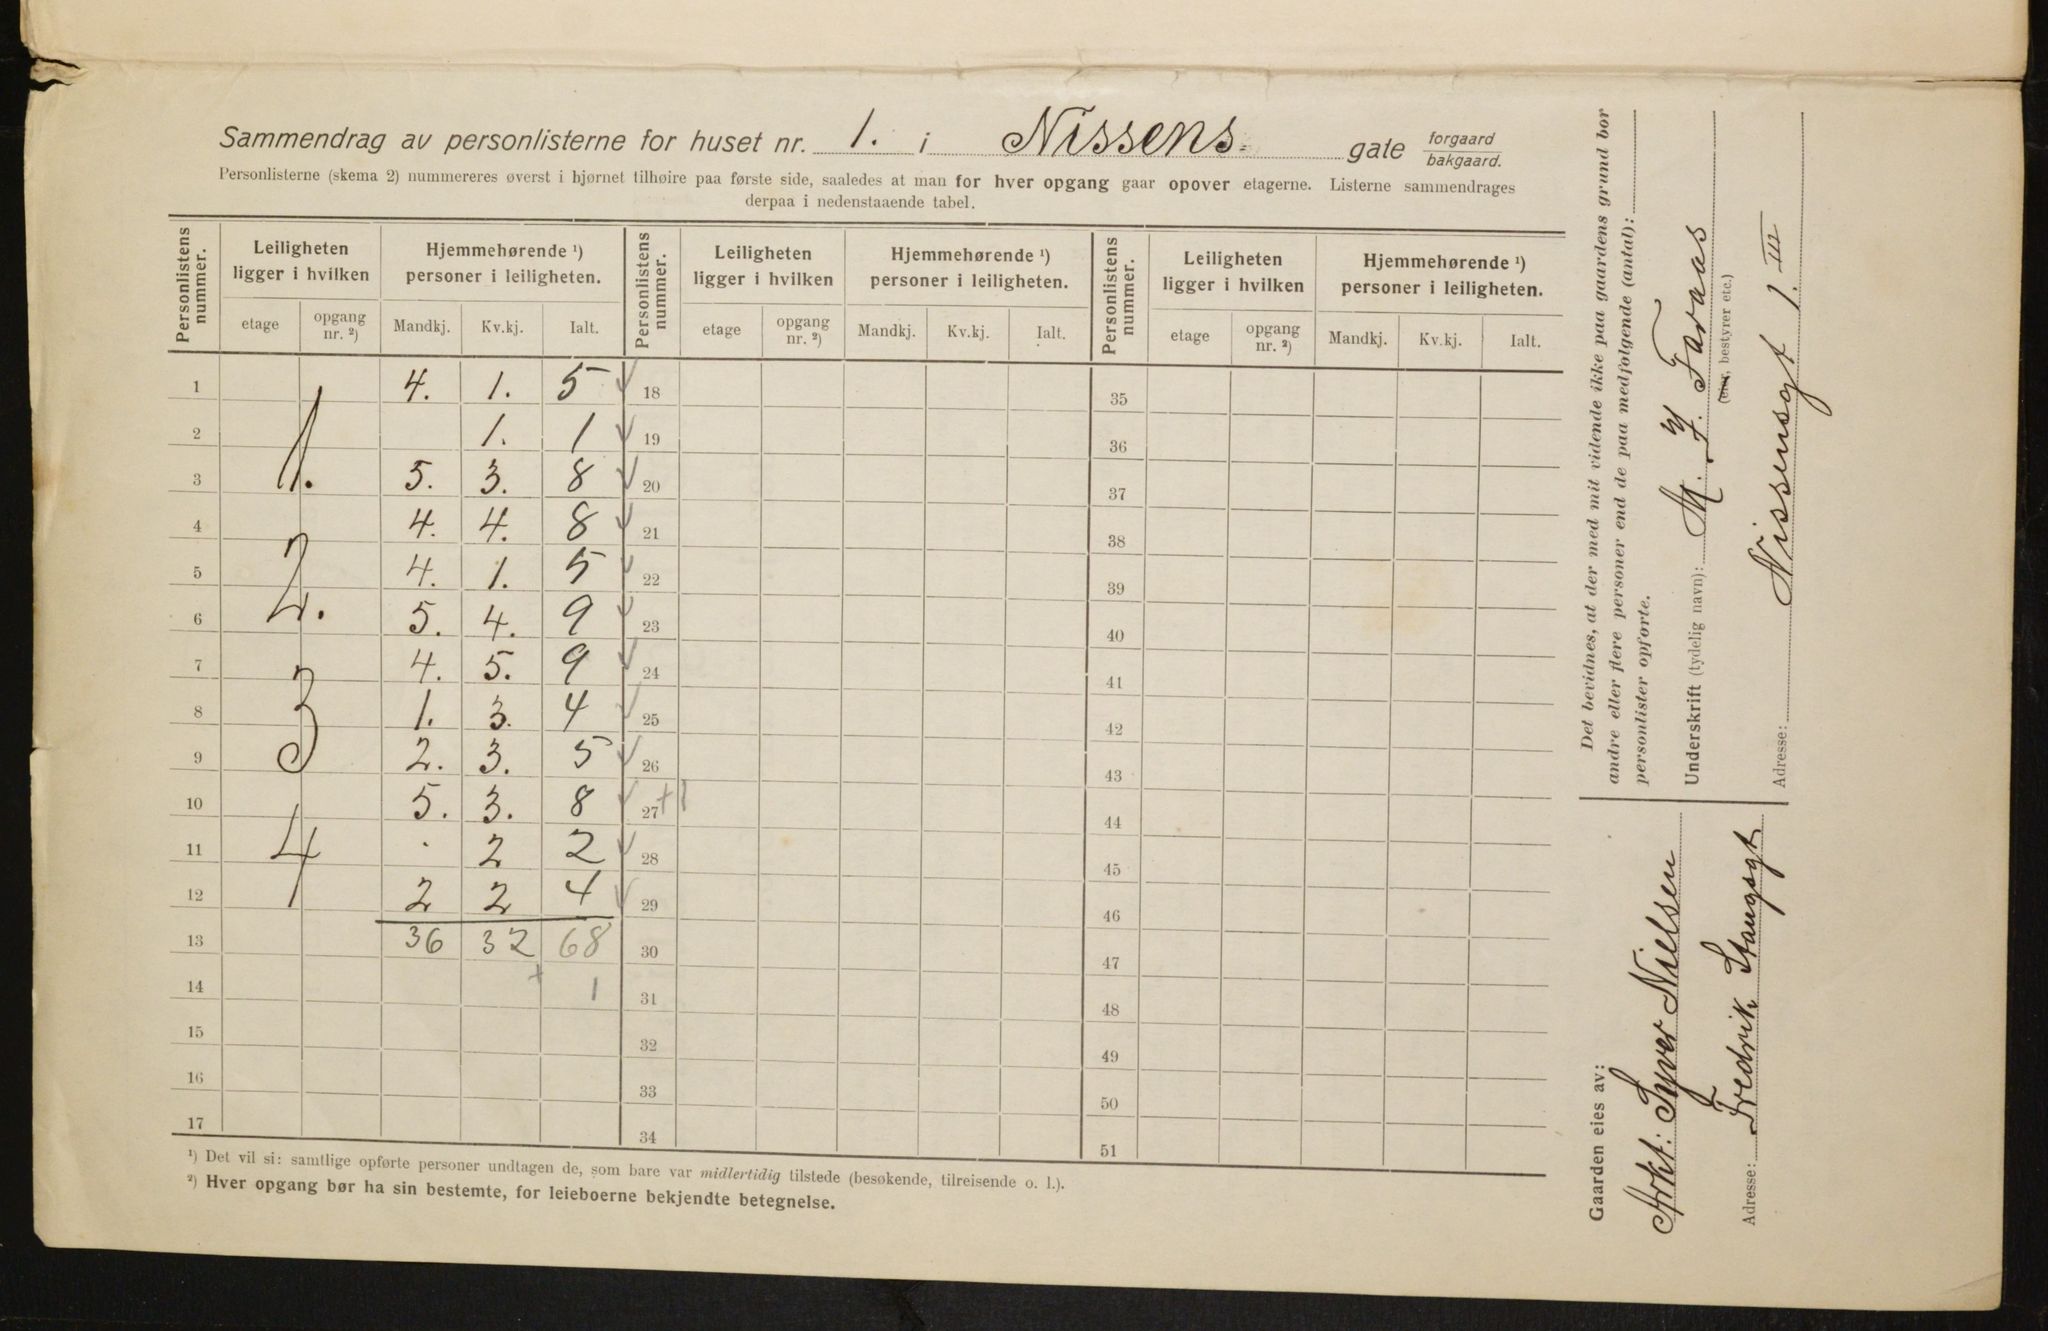 Sammendrag av personlisterne for huset nr. 1. i Nissens gate forgaard bakgaard.
Personlisterne (skema 2) nummereres øverst i hjørnet tilhøire paa første side, saaledes at man for hver opgang gaar opover etagerne. Listerne sammendrages
derpaa i nedenstaaende tabel.
Personlistens nummer. Leiligheten ligger i hvilken Hjemmehørende ¹) personer i leiligheten. Personlistens nummer. Leiligheten ligger i hvilken Hjemmehørende ¹) personer i leiligheten. Personlistens nummer. Leiligheten ligger i hvilken Hjemmehørende ¹) personer i leiligheten.
etage opgang nr. ²) Mandkj. Kv.kj. Ialt. etage opgang nr. ²) Mandkj. Kv.kj. Ialt. etage opgang nr. ²) Mandkj. Kv.kj. Ialt.
1 4. 1. 5 ✓ 18 35
2 1. 1. 1 ✓ 19 36
3 5. 3. 8 ✓ 20 37
4 4. 4. 8 ✓ 21 38
5 2. 4. 1. 5 ✓ 22 39
6 5. 4. 9 ✓ 23 40
7 4. 5. 9 ✓ 24 41
8 3 1. 3. 4 ✓ 25 42
9 2. 3. 5 ✓ 26 43
10 5. 3. 8 ✓ 27 +1 44
11 4 . 2 2 ✓ 28 45
12 2 2 4 ✓ 29 46
13 36 32 68 30 47
14 + 1 31 48
15 32 49
16 33 50
17 34 51
¹) Det vil si: samtlige opførte personer undtagen de, som bare var midlertidig tilstede (besøkende, tilreisende o. l.).
²) Hver opgang bør ha sin bestemte, for leieboerne bekjendte betegnelse.
Det bevidnes, at der med mit vidende ikke paa gaardens grund bor
andre eller flere personer end de paa medfølgende (antal):
personlister opførte.
Underskrift (tydelig navn): M. F. Faraas
(eier, bestyrer etc.)
Adresse: Nissensgt 1. III
Gaarden eies av:
Arkt: Syver Nielsen
Adresse: Fredrik Stangsgt